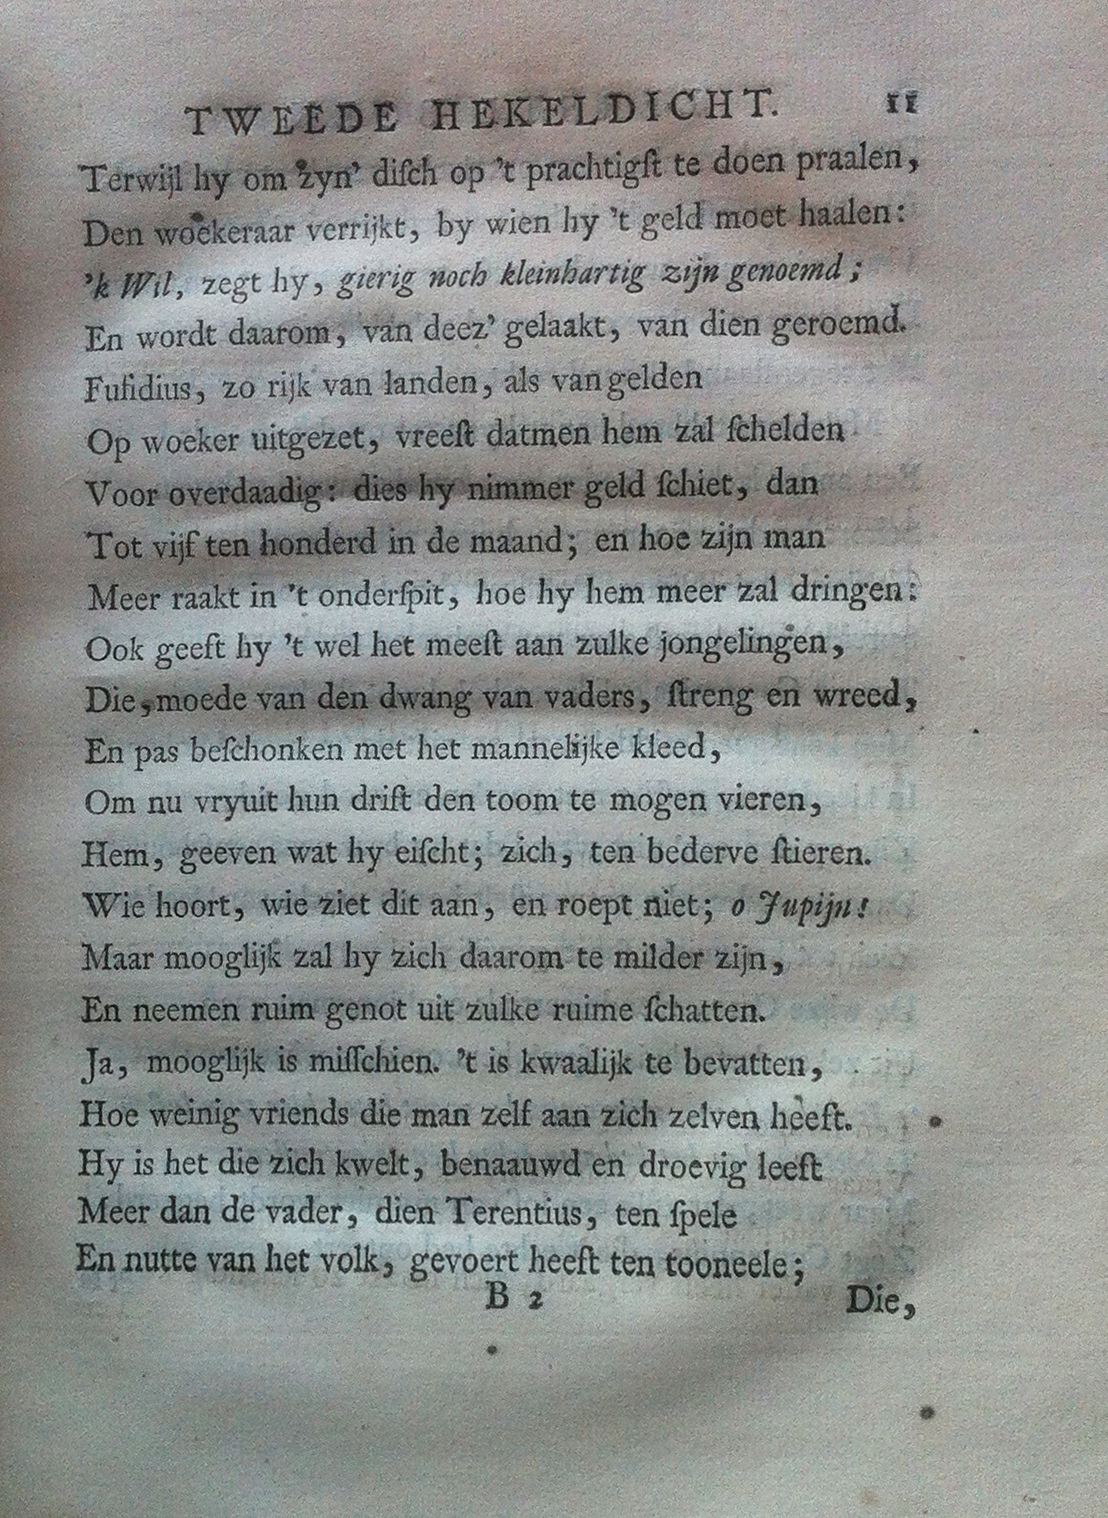 TWEEDE HEKELDICHT. 11
Terwijl hy om zyn’ diſch op ’t prachtigſt te doen praalen,
Den woekeraar verrijkt, by wien hy ’t geld moet haalen:
’k Wil, zegt hy, gierig noch kleinhartig zijn genoemd;
En wordt daarom, van deez’ gelaakt, van dien geroemd.
Fuſidius, zo rijk van landen, als van gelden
Op woeker uitgezet, vreeſt datmen hem zal ſchelden
Voor overdaadig: dies hy nimmer geld ſchiet, dan
Tot vijf ten honderd in de maand; en hoe zijn man
Meer raakt in ’t onderſpit, hoe hy hem meer zal dringen:
Ook geeft hy ’t wel het meeſt aan zulke jongelingen,
Die, moede van den dwang van vaders, ſtreng en wreed,
En pas beſchonken met het mannelijke kleed,
Om nu vryuit hun drift den toom te mogen vieren,
Hem, geeven wat hy eiſcht; zich, ten bederve ſtieren.
Wie hoort, wie ziet dit aan, en roept niet; o Jupijn!
Maar mooglijk zal hy zich daarom te milder zijn,
En neemen ruim genot uit zulke ruime ſchatten.
Ja, mooglijk is miſſchien. ’t is kwaalijk te bevatten,
Hoe weinig vriends die man zelf aan zich zelven heeft.
Hy is het die zich kwelt, benaauwd en droevig leeft
Meer dan de vader, dien Terentius, ten ſpele
En nutte van het volk, gevoert heeft ten tooneele;
B 2 Die,